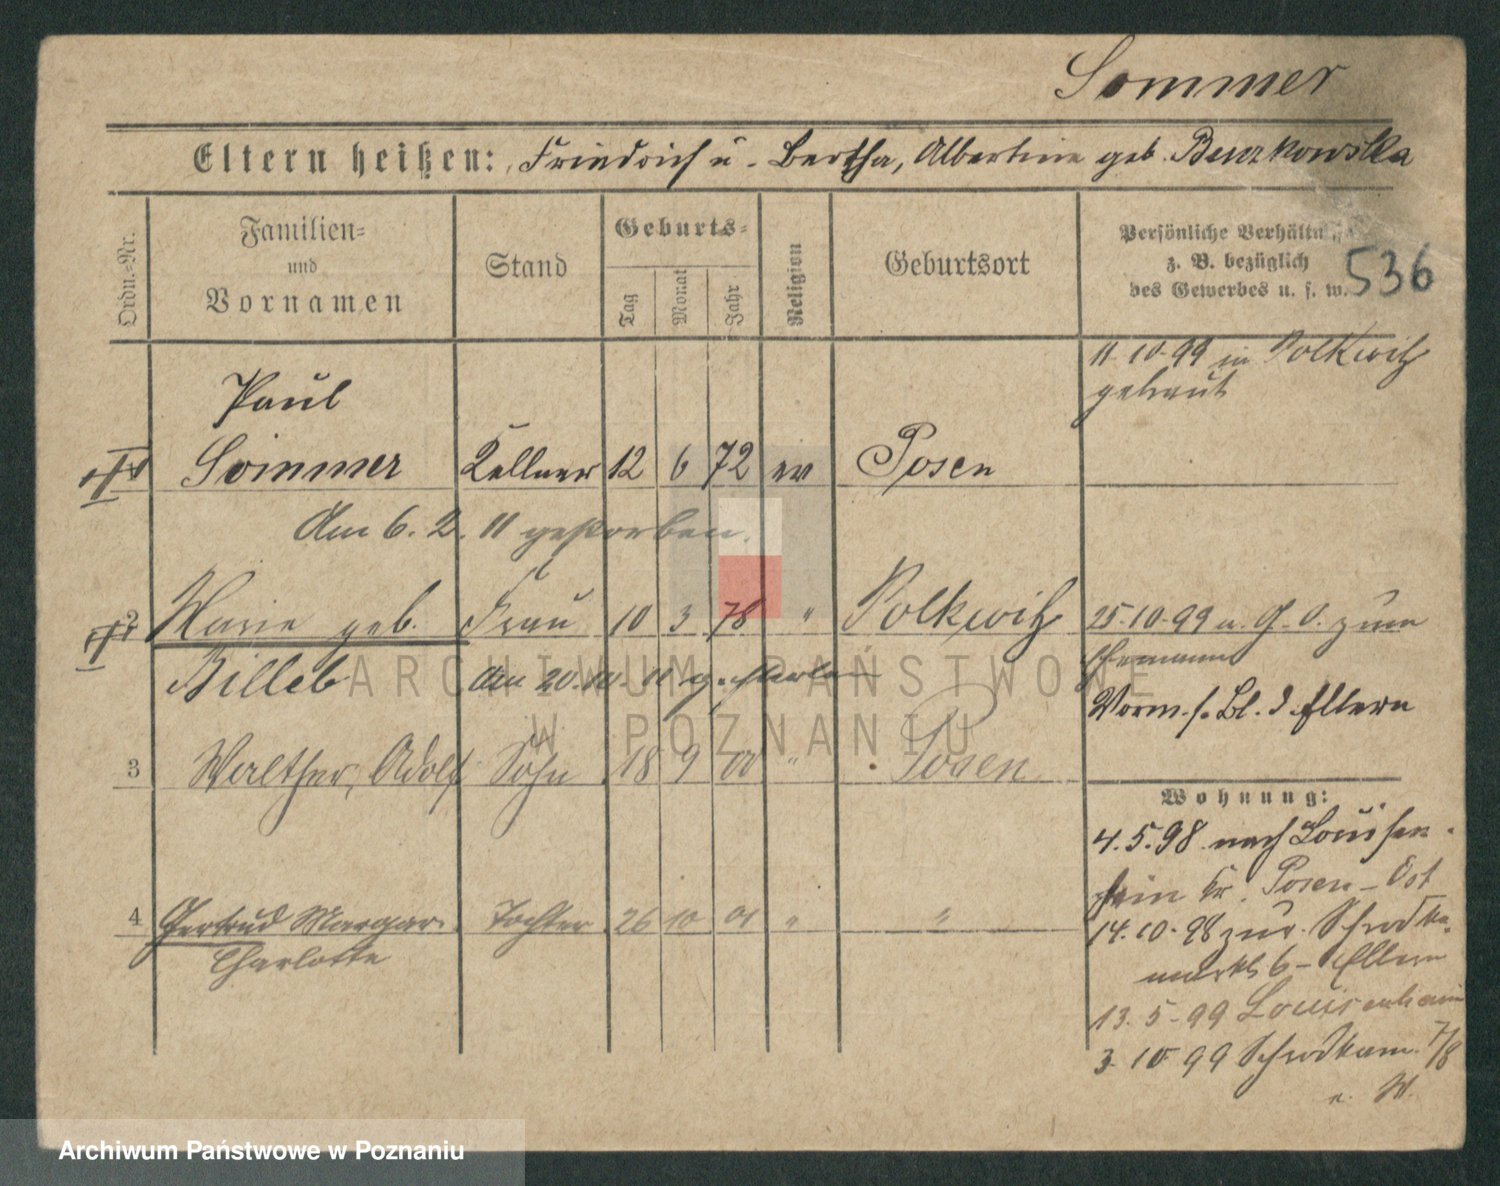 Sommer
Eltern heißen: Friedrich u. Bertha, Albertine geb. Benzkowska
Ordn.-Nr.
Familien-
und
Vornamen
Stand
Geburts-
Tag
Monat
Jahr
Religion
Geburtsort
Persönliche Verhältn
z. B. bezüglich
des Gewerbes u. s. w.
536
11.10.99 in Polkwitz
getraut
Paul
Sommer Kellner 12 6 72 ev Posen
Am 6. 2. 11 gestorben.
2 Marie geb. Frau 10 3 78 " Polkwitz
Billeb Am 20. 10. 11 gestorben
25.10.99 u. G. O. zum
Ehemann
Vorm. s. Bl. d. Eltern
3 Walther, Adolf Sohn 18 9 00 " Posen
4 Gertrud Margar. Tochter 26 10 01 " "
Charlotte
Wohnung:
4.5.98 nach Louisen-
hain Kr. Posen-Ost
14.10.98 zur. Schrodka-
markt 6 - Eltern
13.5.99 Louisenhain
3.10.99 Schrodkam. 7/8
ARCHIWUM PAŃSTWOWE
W POZNANIU
Archiwum Państwowe w Poznaniu